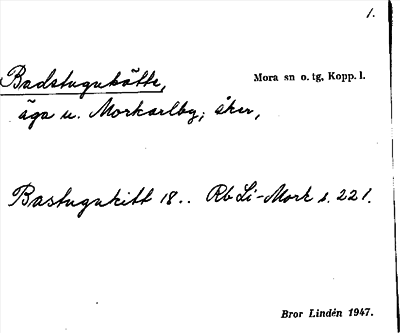 1.
Badstugukätte, Mora sn o. tg, Kopp. l.
äga u. Morkarlby; åker,
Bastugukitt 18.. Rb Li-Mork s. 221.
Bror Lindén 1947.